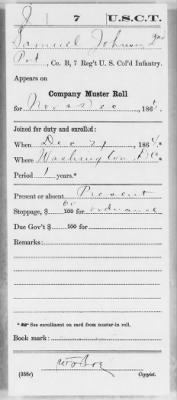 J | 7 | U.S.C.T.
Samuel Johnson 2nd
Pvt., Co. B, 7 Reg't U. S. Col'd Infantry.
Appears on
Company Muster Roll
for Nov & Dec, 1864.
Joined for duty and enrolled:
When Dec 27, 1864.*
Where Washington D.C.
Period 1 years.*
Present or absent Present
Stoppage, $ 60/100 for ordnance
Due Gov't $ /100 for
Remarks:
* See enrollment on card from muster-in roll.
Book mark:
(358c) Copyist.